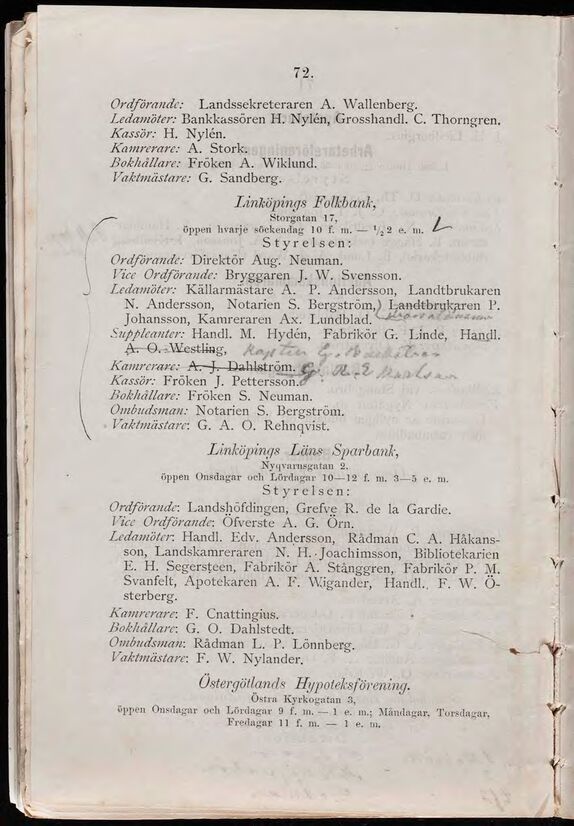 72.
Ordförande: Landssekreteraren A. Wallenberg.
Ledamöter: Bankkassören H. Nylén, Grosshandl. C. Thorngren.
Kassör: H. Nylén.
Kamrerare: A. Stork.
Bokhållare: Fröken A. Wiklund.
Vaktmästare: G. Sandberg.
Linköpings Folkbank,
Storgatan 17,
öppen hvarje söckendag 10 f. m. — ½2 e. m.
Styrelsen:
Ordförande: Direktör Aug. Neuman.
Vice Ordförande: Bryggaren J. W. Svensson.
Ledamöter: Källarmästare A. P. Andersson, Landtbrukaren
N. Andersson, Notarien S. Bergström, Landtbrukaren P.
Johansson, Kamreraren Ax. Lundblad.
Suppleanter: Handl. M. Hydén, Fabrikör G. Linde, Handl.
A. O. Westling, Kapten G.
Kamrerare: A. J. Dahlström. G. R. E. Karlson
Kassör: Fröken J. Pettersson.
Bokhållare: Fröken S. Neuman.
Ombudsman: Notarien S. Bergström.
Vaktmästare: G. A. O. Rehnqvist.
Linköpings Läns Sparbank,
Nyqvarnsgatan 2,
öppen Onsdagar och Lördagar 10—12 f. m. 3—5 e. m.
Styrelsen:
Ordförande: Landshöfdingen, Grefve R. de la Gardie.
Vice Ordförande: Öfverste A. G. Örn.
Ledamöter: Handl. Edv. Andersson, Rådman C. A. Håkans-
son, Landskamreraren N. H. Joachimsson, Bibliotekarien
E. H. Segersteen, Fabrikör A. Stånggren, Fabrikör P. M.
Svanfelt, Apotekaren A. F. Wigander, Handl. F. W. Ö-
sterberg.
Kamrerare: F. Cnattingius.
Bokhållare: G. O. Dahlstedt.
Ombudsman: Rådman L. P. Lönnberg.
Vaktmästare: F. W. Nylander.
Östergötlands Hypoteksförening.
Östra Kyrkogatan 3,
öppen Onsdagar och Lördagar 9 f. m. — 1 e. m.; Måndagar, Torsdagar,
Fredagar 11 f. m. — 1 e. m.